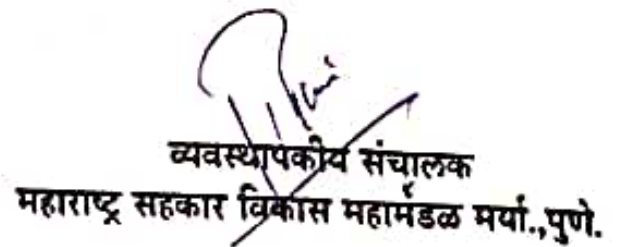 व्यवस्थापकीय संचालक
महाराष्ट्र सहकार विकास महामंडळ मर्या.,पुणे.